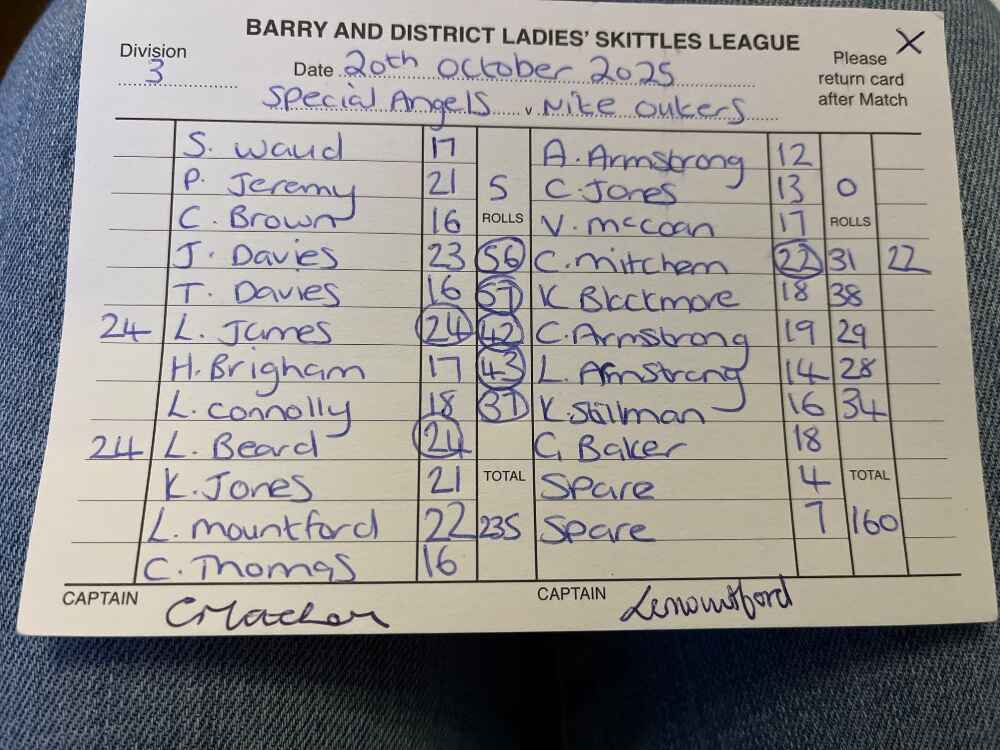 BARRY AND DISTRICT LADIES' SKITTLES LEAGUE X
Division 3
Date 20th October 2025
Please return card after Match
Special Angels v Nike Oukers
S. Waud 17 A. Armstrong 12
P. Jeremy 21 5 C. Jones 13 0
C. Brown 16 ROLLS V. McCoan 17 ROLLS
J. Davies 23 56 C. Mitchem 22 31 22
T. Davies 16 57 K Blackmore 18 38
24 L. James 24 42 C. Armstrong 19 29
H. Brigham 17 43 L. Armstrong 14 28
L. Connolly 18 37 K. Stillman 16 34
24 L. Beard 24 G Baker 18
K. Jones 21 TOTAL Spare 4 TOTAL
L. Mountford 22 235 Spare 7 160
C. Thomas 16
CAPTAIN CAPTAIN